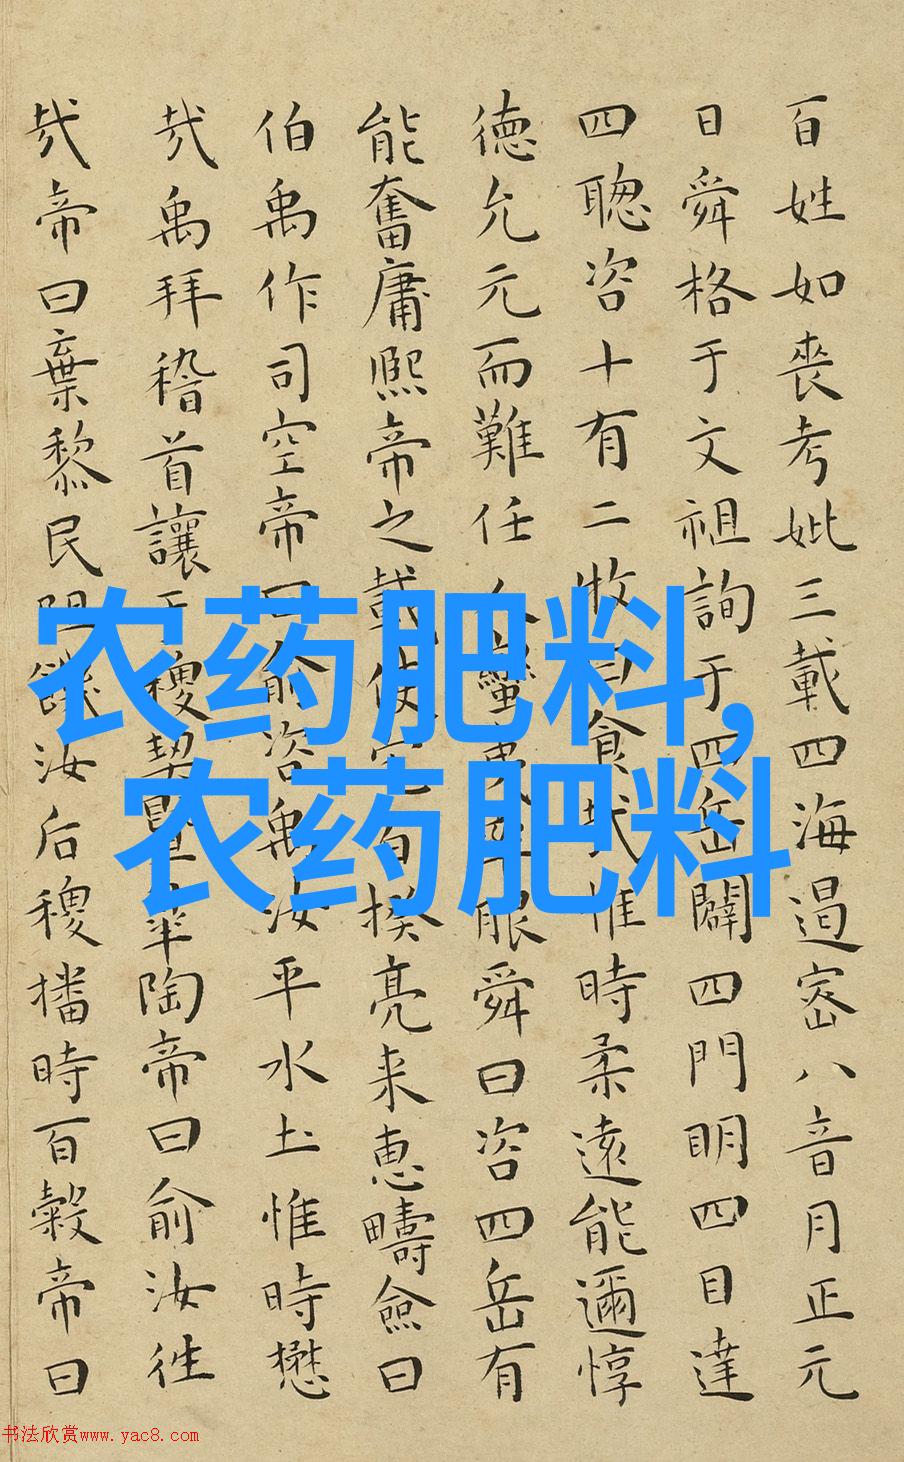 百姓如喪考妣三載四海遏密八音月正元
日舜格于文祖詢于四岳闢四門明四目達
四聦咨十有二牧曰食哉惟時柔遠能邇惇
徳允元而難任人蠻夷率服舜曰咨四岳有
能奮庸熙帝之載使宅百揆亮采恵疇僉曰
伯禹作司空帝曰俞咨禹汝平水土惟時懋
哉禹拜稽首讓于稷契暨皐陶帝曰俞汝徃
哉帝曰棄黎民阻飢汝后稷播時百穀帝曰
农药肥料,
农药肥料
书法欣赏www.yac8.com